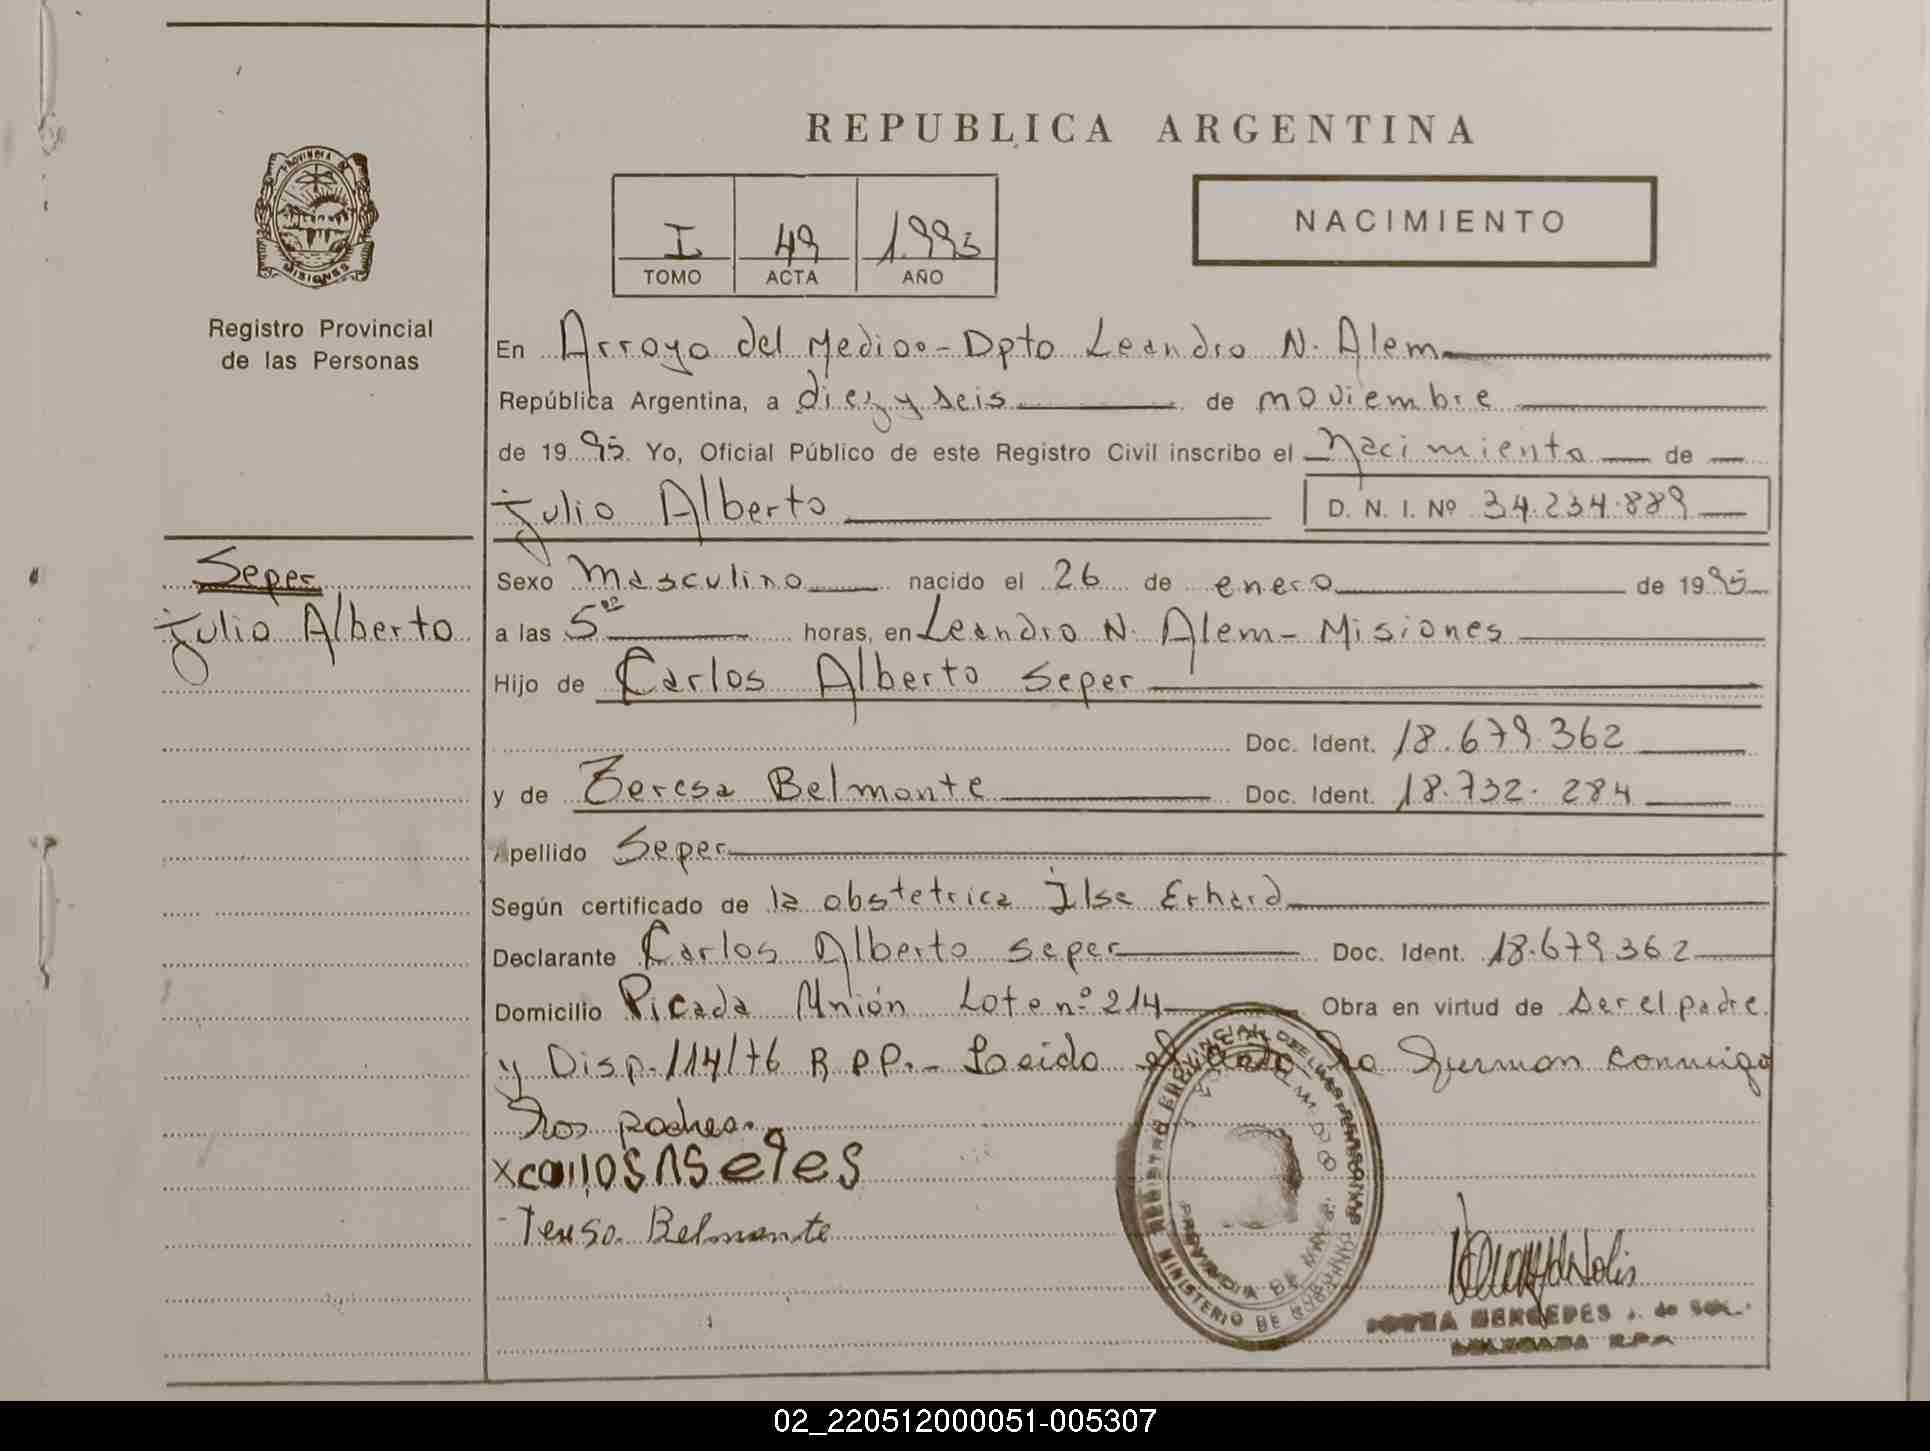 REPUBLICA ARGENTINA
PROVINCIA DE
MISIONES
Registro Provincial
de las Personas
I 49 1.995
TOMO ACTA AÑO
NACIMIENTO
En Arroyo del Medio.- Dpto Leandro N. Alem
República Argentina, a diez y seis de noviembre
de 1995 Yo, Oficial Público de este Registro Civil inscribo el Nacimiento de
Julio Alberto D. N. I. Nº 34.234.889
Seper
Julio Alberto
Sexo Masculino nacido el 26 de enero de 1995
a las 5 horas, en Leandro N. Alem - Misiones
Hijo de Carlos Alberto Seper
Doc. Ident. 18.679.362
y de Teresa Belmonte Doc. Ident. 18.732.284
Apellido Seper
Según certificado de la obstetrica Ilse Erhard
Declarante Carlos Alberto Seper Doc. Ident. 18.679.362
Domicilio Picada Unión Lote nº 214 Obra en virtud de ser el padre
y Disp. 114/76 R.P.P.- Leido el acta la firman conmigo
los padres.
x carlos
Teresa Belmonte
REGISTRO PROVINCIAL DE LAS PERSONAS
MINISTERIO DE GOBIERNO
PROVINCIA DE MNES.
MERCEDES de SOL
DELEGADA R.P.P.
02_220512000051-005307